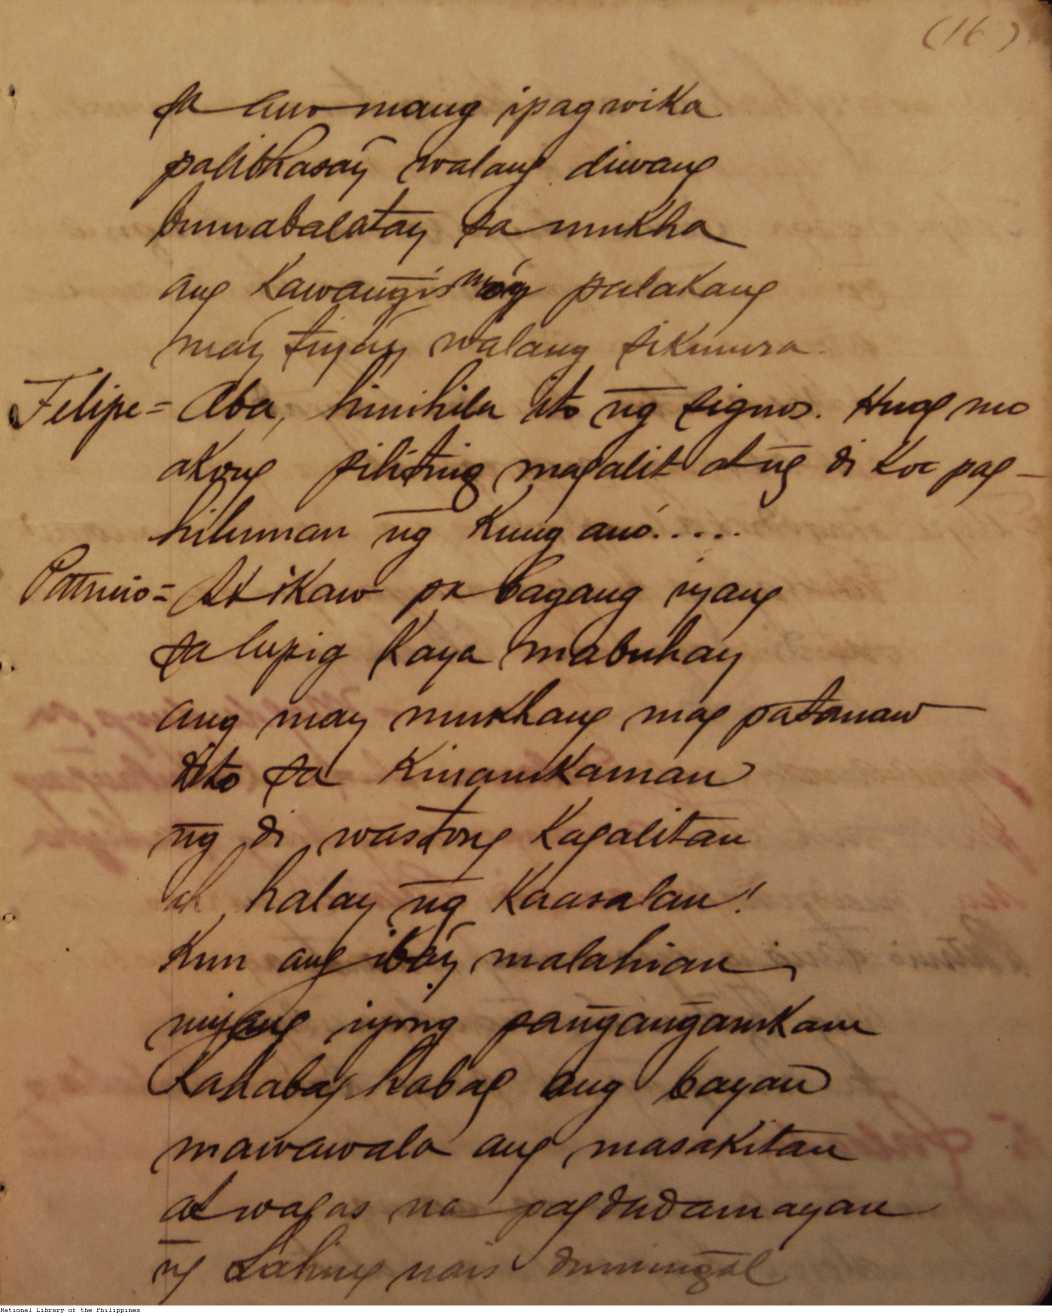 (16)
sa ano mang ipagwika
palibhasay walang diwang
bumabalatay sa mukha
ang kawangis mo'y palakang
may tiyay walang sikmura.
Felipe = Aba, hinihila ito ng̃ signos. Huag mo
akong piliting magalit at ng̃ di koe pag-
hiluman ng̃ kung anó.....
Patricio = At ikaw pa bagang iyang
sa lupig kaya mabuhay
ang may mukhang mag patanaw
dito sa kinamkaman
ng̃ di wastong kagalitan
ah, halay ng̃ kaasalan!
kun ang ibáy malahian
niyang iyong pang̃ang̃amkam
kahabaghabag ang bayan
mawawala ang masakitan
at wagas na pagdadamayan
ng̃ lahing nais dumung̃al
National Library of the Philippines